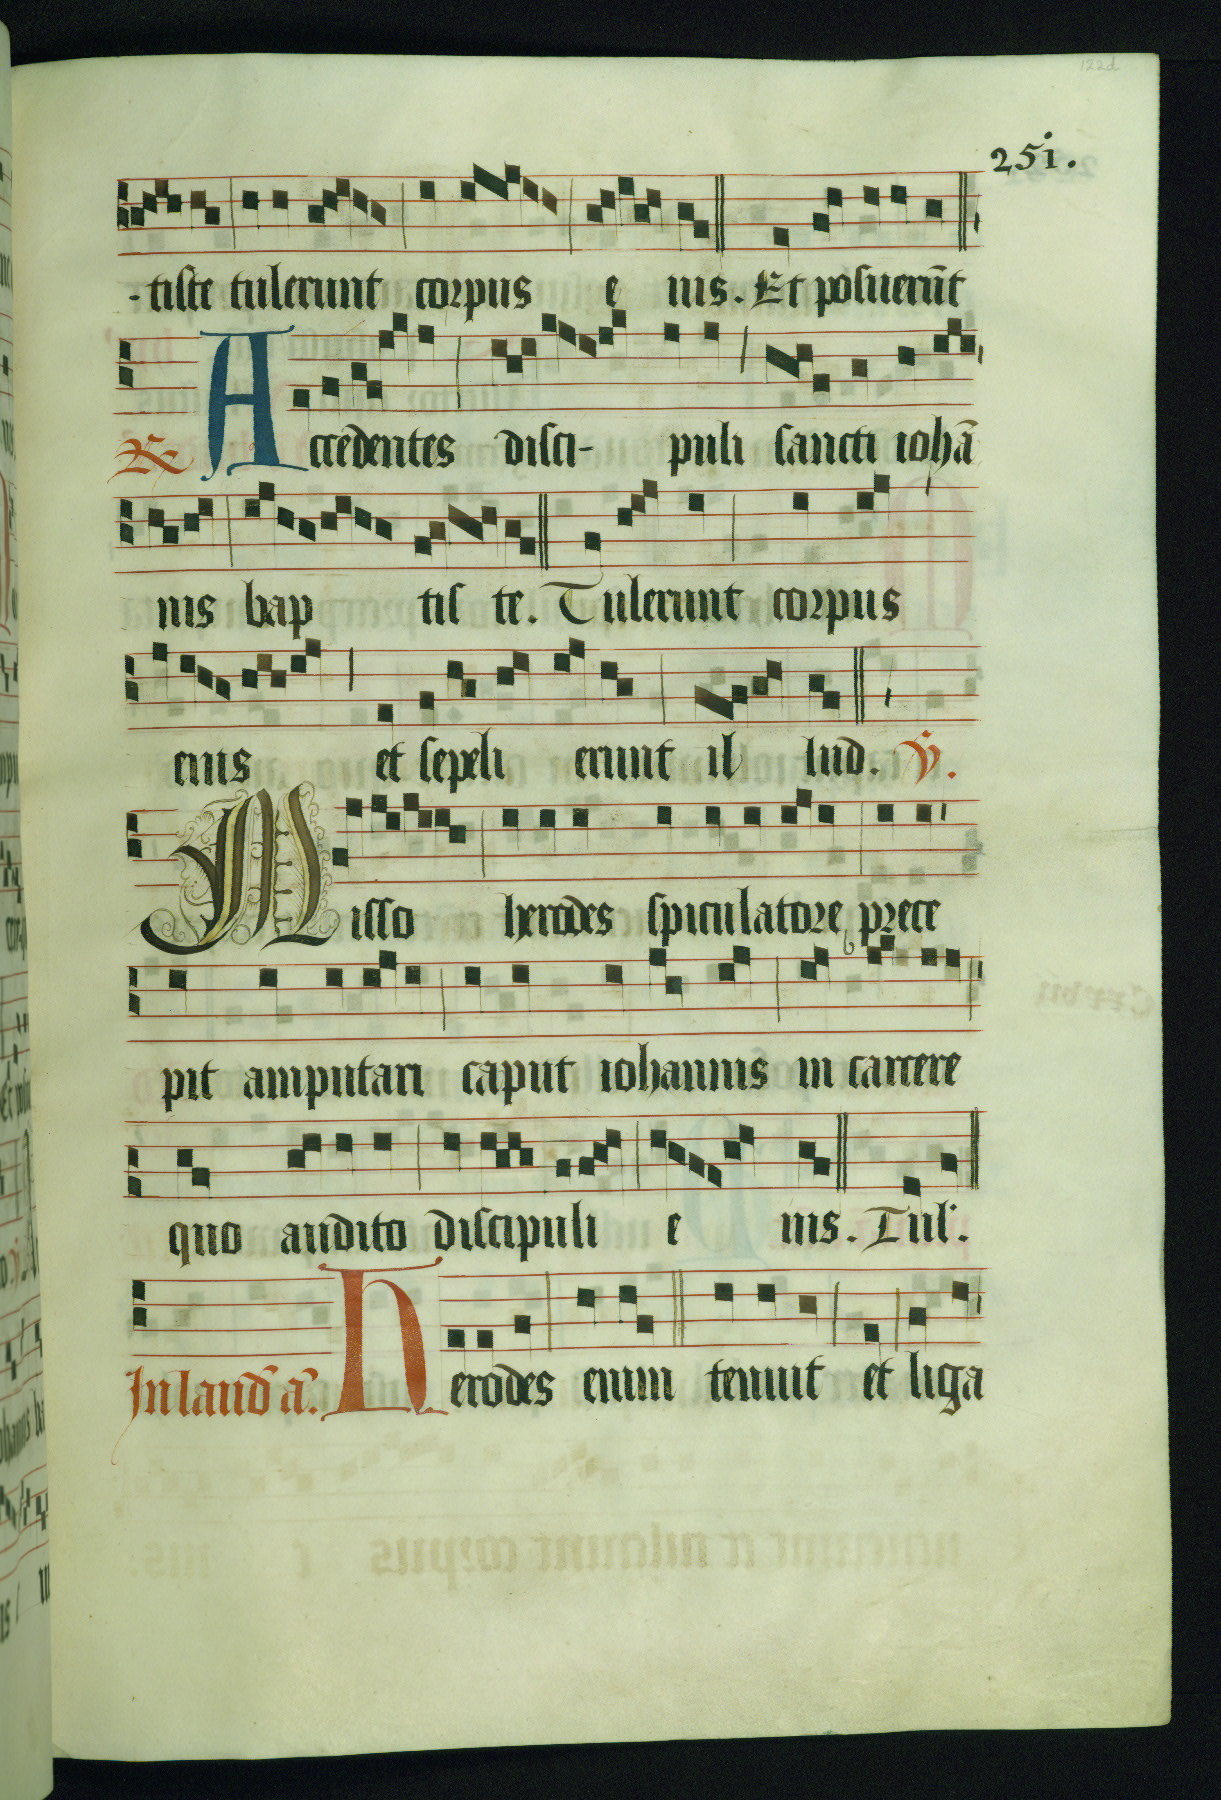 122d
251.
-tiste tulerunt corpus e ius. Et posuerūt
℟ Accedentes disci- puli sancti iohā
nis bap tis te. Tulerunt corpus
eius et sepeli erunt il lud. ℣.
Misso herodes spiculatore prece
pit amputari caput iohannis in carcere
quo audito discipuli e ius. Tul'.
In laud' a'. Herodes enim tenuit et liga